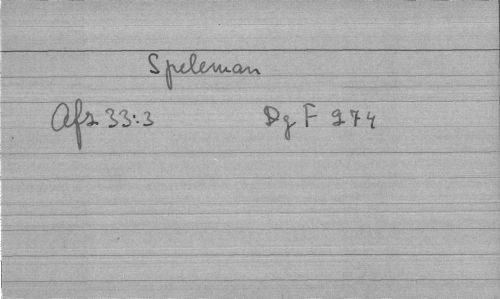 Speleman
Afs 33:3 Dg F 274